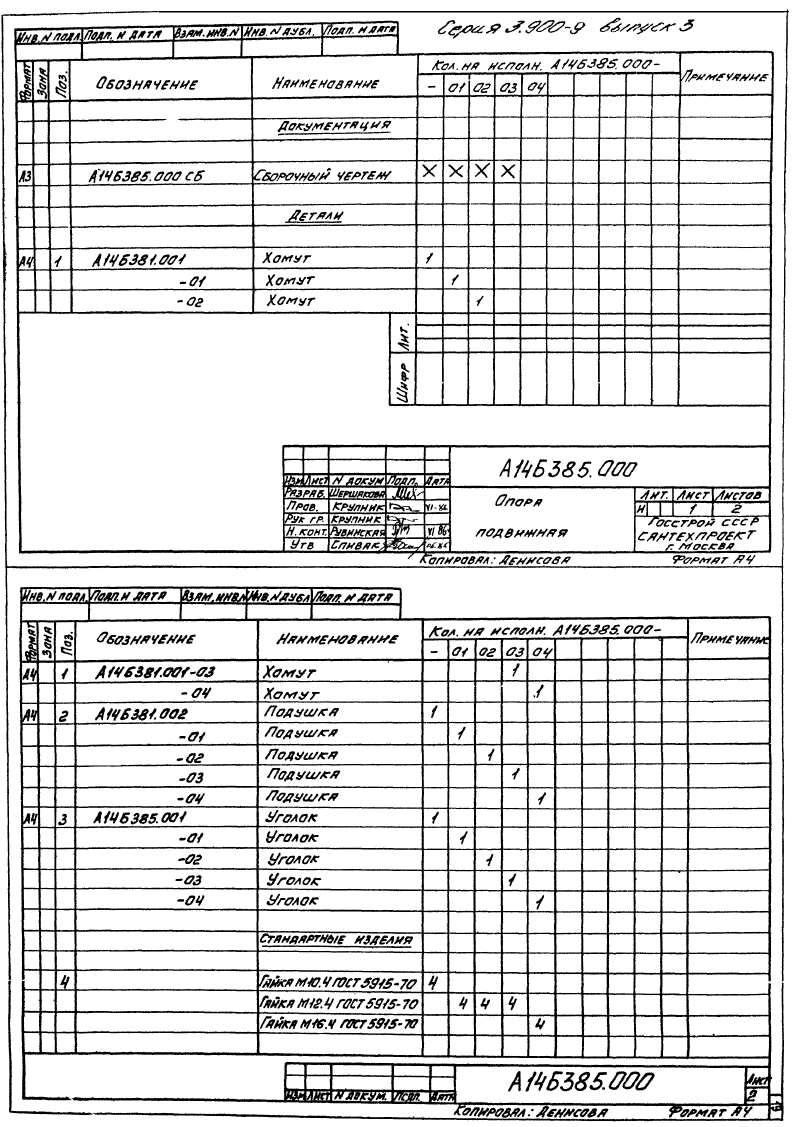 Серия 3.900-9 выпуск 3
Инв. N подл. Подп. и дата Взам. инв. N Инв. N дубл. Подп. и дата
Формат Зона Поз. Обозначение Наименование Кол. на исполн. А14Б385.000- Примечание
- 01 02 03 04
Документация
А3 А14Б385.000 СБ Сборочный чертеж X X X X
Детали
А4 1 А14Б381.001 Хомут 1
-01 Хомут 1
-02 Хомут 1
Лит.
Шифр
А14Б385.000
Изм Лист N докум Подп. Дата
Разраб. Шершакова
Пров. Крупник VI-86
Рук гр. Крупник
Н. конт. Рубинская VI 86
Утв Спивак
Опора
подвижная
Лит. Лист Листов
И 1 2
Госстрой СССР
Сантехпроект
г. Москва
Копировал: Денисова Формат А4
Инв. N подл. Подп. и дата Взам. инв. N Инв. N дубл. Подп. и дата
Формат Зона Поз. Обозначение Наименование Кол. на исполн. А14Б385.000- Примечание
- 01 02 03 04
А4 1 А14Б381.001-03 Хомут 1
-04 Хомут 1
А4 2 А14Б381.002 Подушка 1
-01 Подушка 1
-02 Подушка 1
-03 Подушка 1
-04 Подушка 1
А4 3 А14Б385.001 Уголок 1
-01 Уголок 1
-02 Уголок 1
-03 Уголок 1
-04 Уголок 1
Стандартные изделия
4 Гайка М10.4 ГОСТ 5915-70 4
Гайка М12.4 ГОСТ 5915-70 4 4 4
Гайка М16.4 ГОСТ 5915-70 4
А14Б385.000
Лист
2
Изм Лист N докум. Подп. Дата
Копировал: Денисова Формат А4